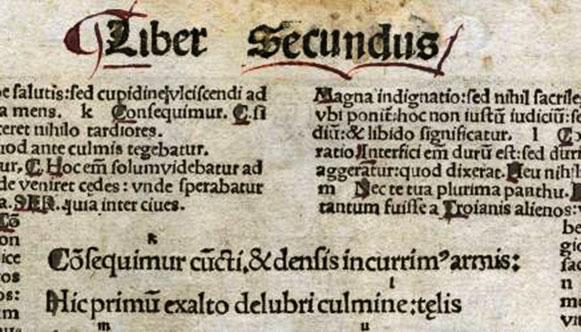 Liber Secundus
e salutis:sed cupidine vlciscendi ad
a mens. k Consequimur. C.si
teret nihilo tardiores.
uod ante culmis tegebatur.
ur. C. Hoc em̄ solum videbatur ad
de veniret cędes: vnde sperabatur
a. SER. quia inter ciues.
Magna indignatio:sed nihil sacrile
vbi ponit̄:hoc non iustū iudiciū:se
diū:& libido significatur. l
ratio. Interfici em̄ durū est:sed duri
aggeratur:quod dixerat. Heu nihil
m Nec te tua plurima panthu.
tantum fuisse a Troianis alienos:
Cō
on
ice
ros
os:
m
k
Cōsequimur cūcti,& densis incurrimꝰ armis:
l
Hic primū ex alto delubri culmine:tęlis
m u
be
gic
fac
n
mo
viı